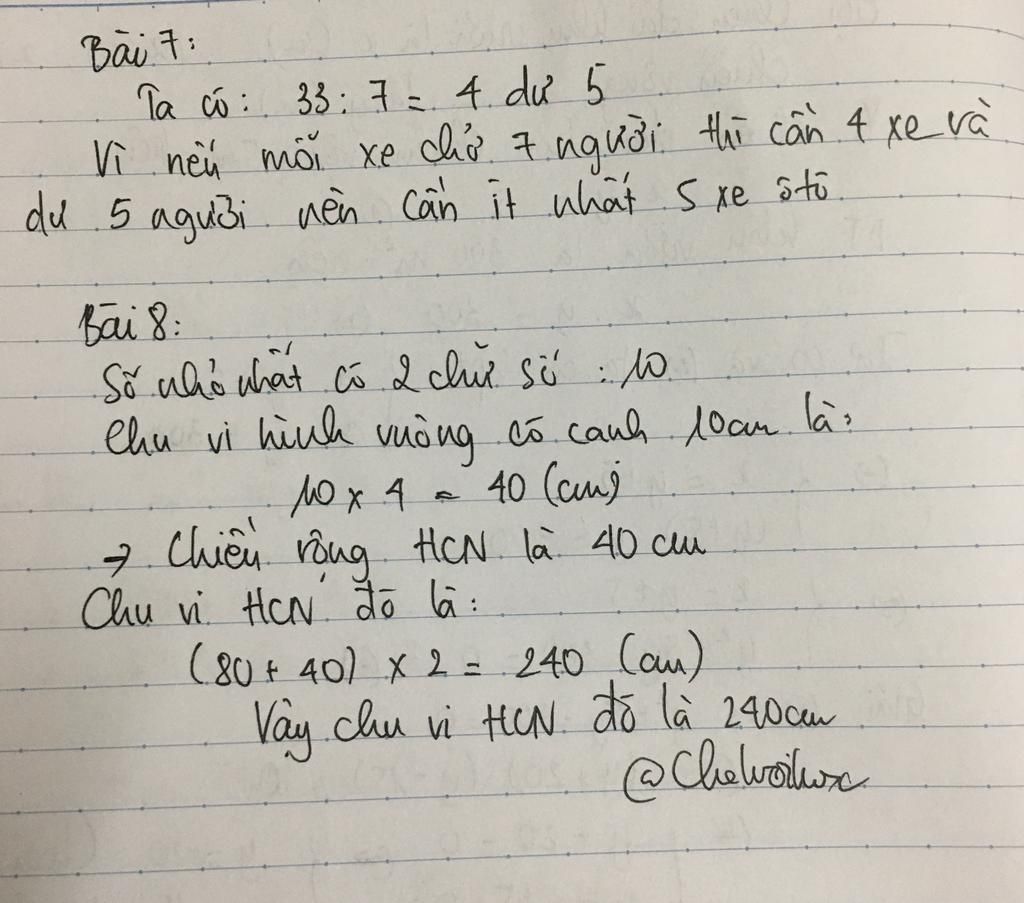 Bài 7:
Ta có: 33 : 7 = 4 dư 5
Vì nếu mỗi xe chở 7 người thì cần 4 xe và
dư 5 người nên cần ít nhất 5 xe ôtô
Bài 8:
Số nhỏ nhất có 2 chữ số : 10
Chu vi hình vuông có cạnh 10cm là:
10 x 4 = 40 (cm)
→ Chiều rộng HCN là 40 cm
Chu vi HCN đó là:
(80 + 40) x 2 = 240 (cm)
Vậy chu vi HCN đó là 240cm